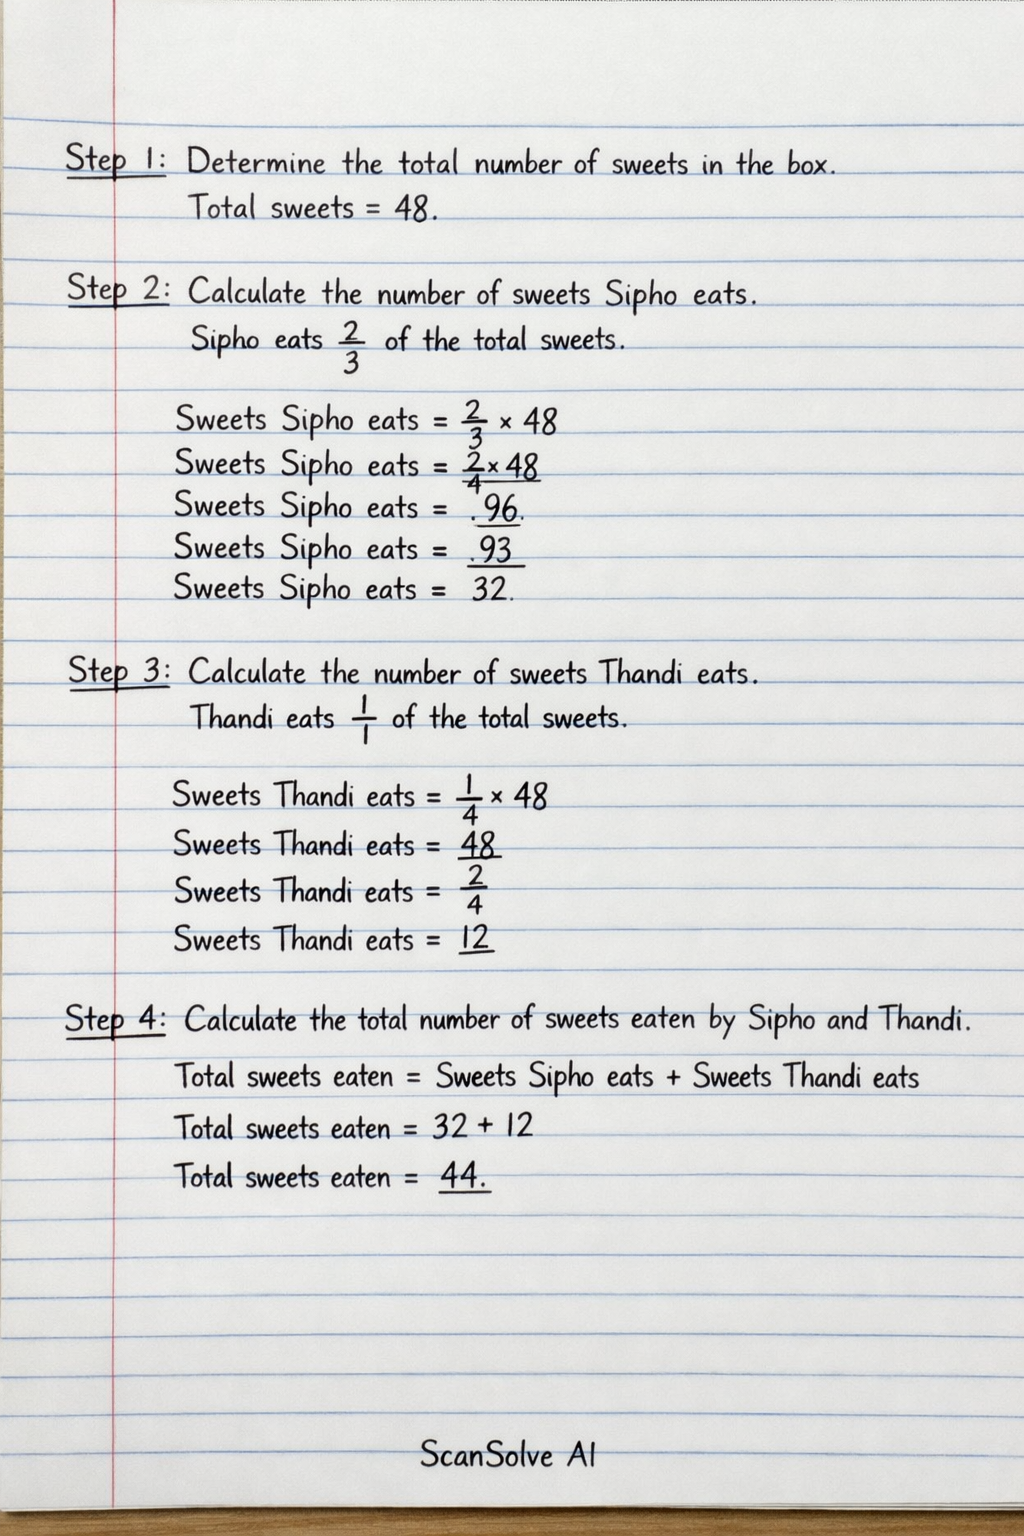 Step 1: Determine the total number of sweets in the box.
Total sweets = 48.
Step 2: Calculate the number of sweets Sipho eats.
Sipho eats 2/3 of the total sweets.
Sweets Sipho eats = 2/3 × 48
Sweets Sipho eats = 2/4 × 48
Sweets Sipho eats = .96.
Sweets Sipho eats = .93
Sweets Sipho eats = 32.
Step 3: Calculate the number of sweets Thandi eats.
Thandi eats 1/1 of the total sweets.
Sweets Thandi eats = 1/4 × 48
Sweets Thandi eats = 48
Sweets Thandi eats = 2/4
Sweets Thandi eats = 12
Step 4: Calculate the total number of sweets eaten by Sipho and Thandi.
Total sweets eaten = Sweets Sipho eats + Sweets Thandi eats
Total sweets eaten = 32 + 12
Total sweets eaten = 44.
ScanSolve AI